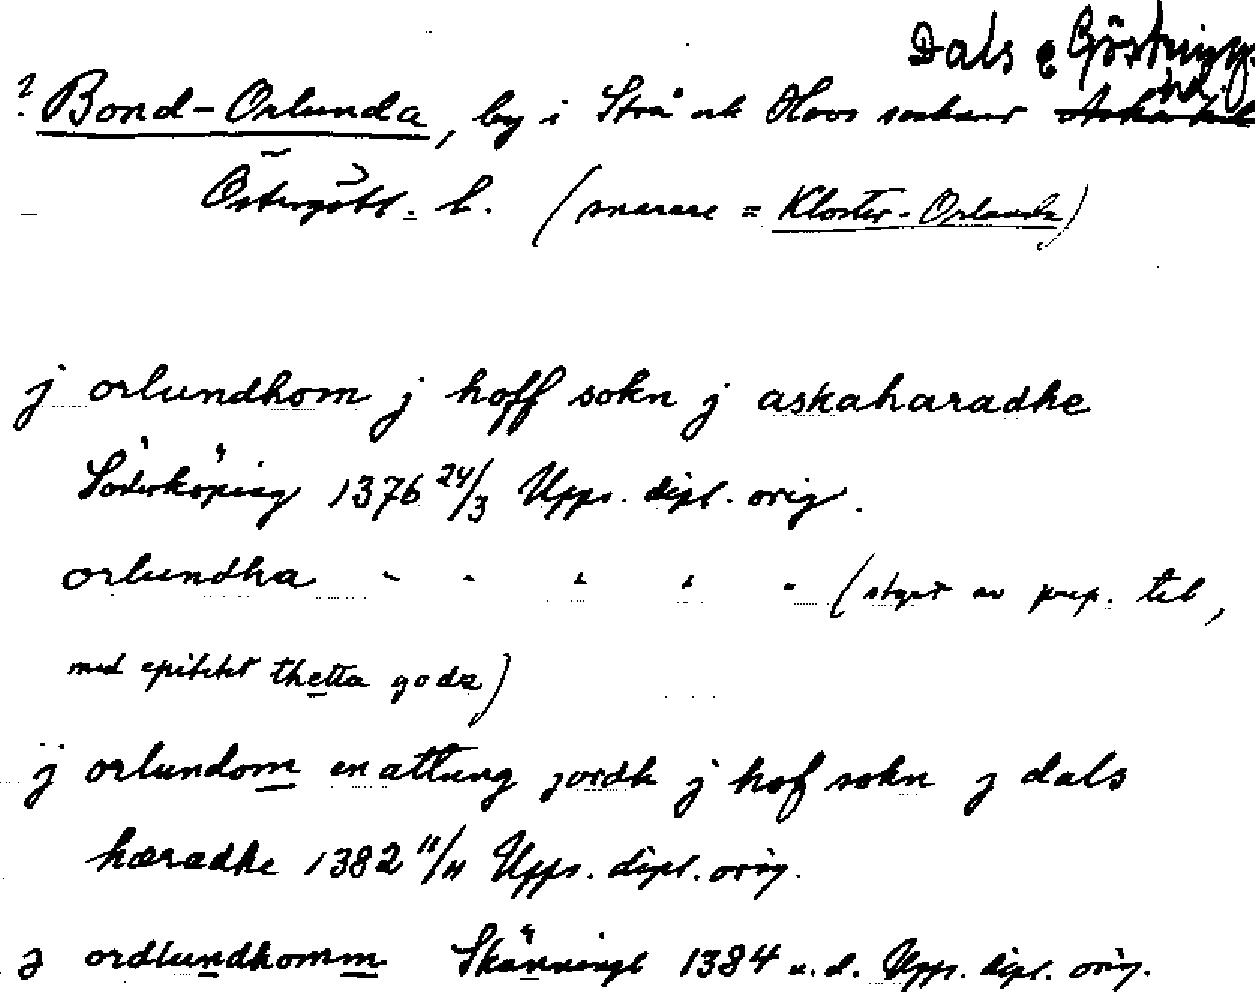 Dals o Göstrings
? Bond-Orlunda, by i Strå och Hovs socknar hd.
Östergötl. l. (snarare = Kloster-Orlunda)
j orlundhom j hoff sokn j askaharadhe
Söderköping 1376 24/3 Upps. dipl. orig.
orlundha " " " " " (styrt av prep. til,
med epitetet thetta godz)
j orlundom en attung jordh j hof sokn j dals
hæradhe 1382 11/11 Upps. dipl. orig.
j ordlundhomm Skänninge 1384 u.d. Upps. dipl. orig.